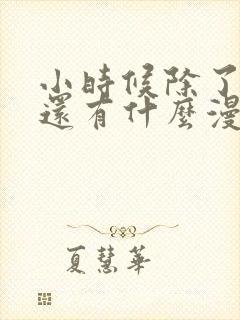 小時候除了
還有什麼漫
夏慧華